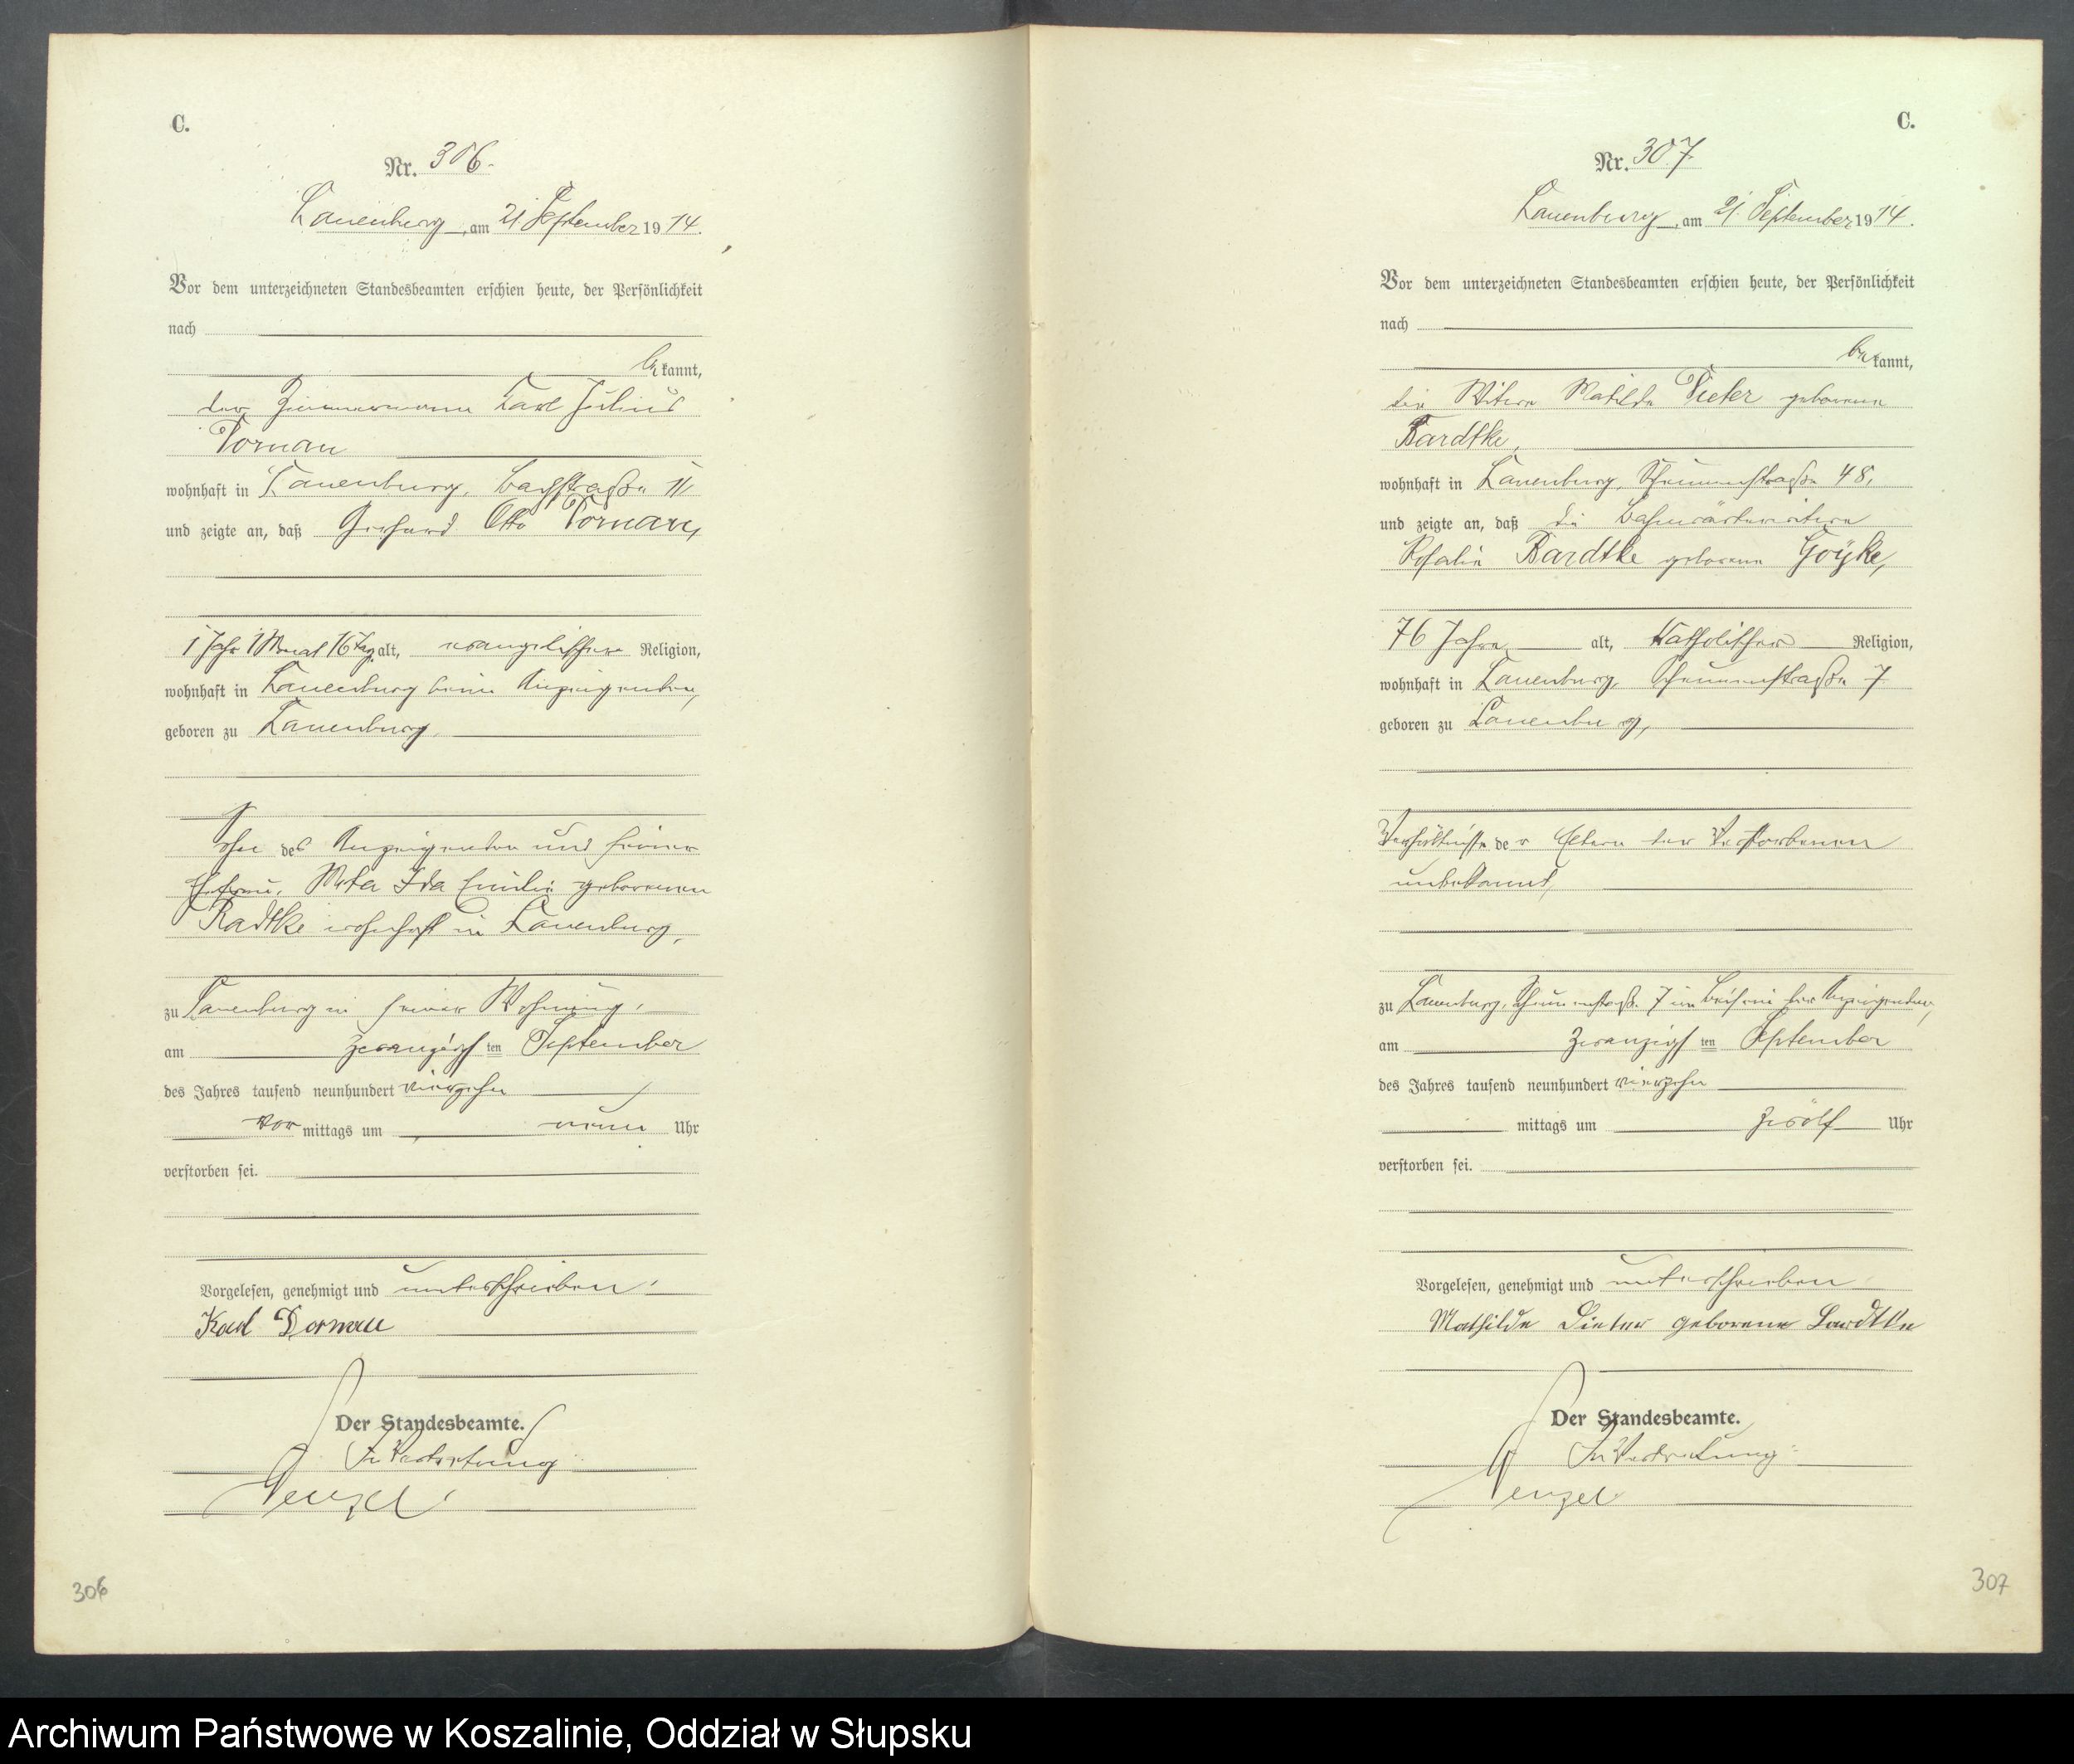 C.
Nr. 306.
Lauenburg, am 21. September 1914.
Vor dem unterzeichneten Standesbeamten erschien heute, der Persönlichkeit
nach
bekannt,
der Zimmermann Karl Julius
Dornau
wohnhaft in Lauenburg, Bachstraße 11
und zeigte an, daß Gerhard Otto Dornau,
1 Jahr 1 Monat 16 Tag alt, evangelischer Religion,
wohnhaft in Lauenburg beim Anzeigenden,
geboren zu Lauenburg,
Sohn des Anzeigenden und seiner
Ehefrau, Meta Ida Emilie geborenen
Radtke wohnhaft in Lauenburg,
zu Lauenburg in seiner Wohnung,
am zwanzigsten September
des Jahres tausend neunhundert vierzehn
vormittags um neun Uhr
verstorben sei.
Vorgelesen, genehmigt und unterschrieben.
Karl Dornau
Der Standesbeamte.
In Vertretung
Wenzel
306
C.
Nr. 307.
Lauenburg, am 21. September 1914.
Vor dem unterzeichneten Standesbeamten erschien heute, der Persönlichkeit
nach
bekannt,
die Witwe Matilde Dieter geborene
Bardtke,
wohnhaft in Lauenburg, Scheunenstraße 48,
und zeigte an, daß die Bahnwärterwitwe
Rosalie Bardtke geborene Goyke,
76 Jahre alt, katholischer Religion,
wohnhaft in Lauenburg, Scheunenstraße 7
geboren zu Lauenburg,
Verhältnisse der Eltern der Verstorbenen
unbekannt,
zu Lauenburg, Scheunenstraße 7 im Beisein der Anzeigenden,
am zwanzigsten September
des Jahres tausend neunhundert vierzehn
mittags um zwölf Uhr
verstorben sei.
Vorgelesen, genehmigt und unterschrieben
Mathilde Dieter geborene Bardtke
Der Standesbeamte.
In Vertretung:
Wenzel
307
Archiwum Państwowe w Koszalinie, Oddział w Słupsku